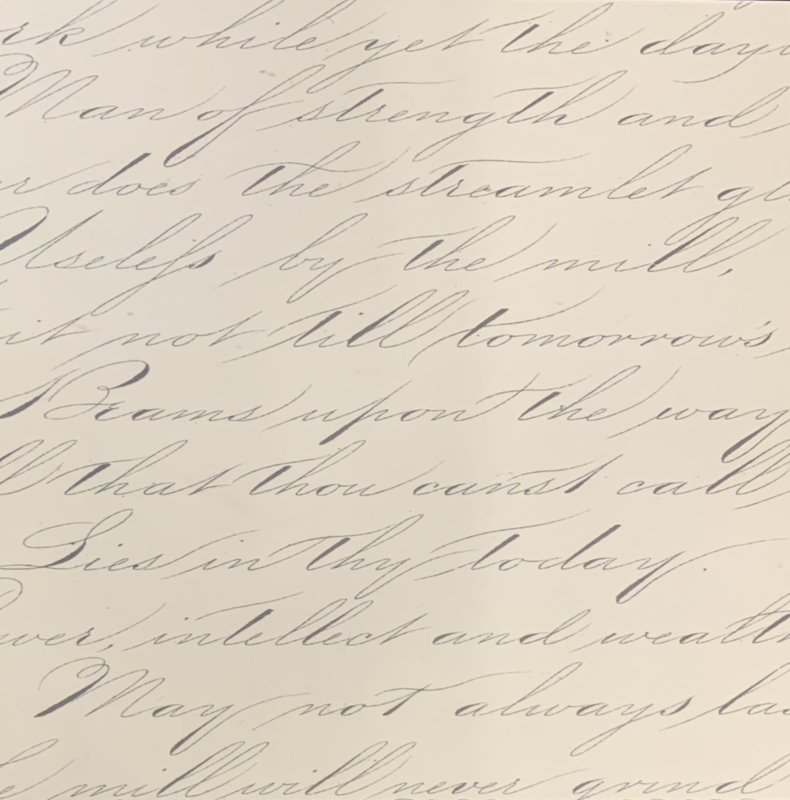 rk while yet the dayl
Man of strength and
er does the streamlet gl
Useless by the mill,
it not till tomorrow's
Beams upon the way
ll that thou canst call
Lies in thy today.
ower, intellect and wealth
May not always las
e mill will never grind